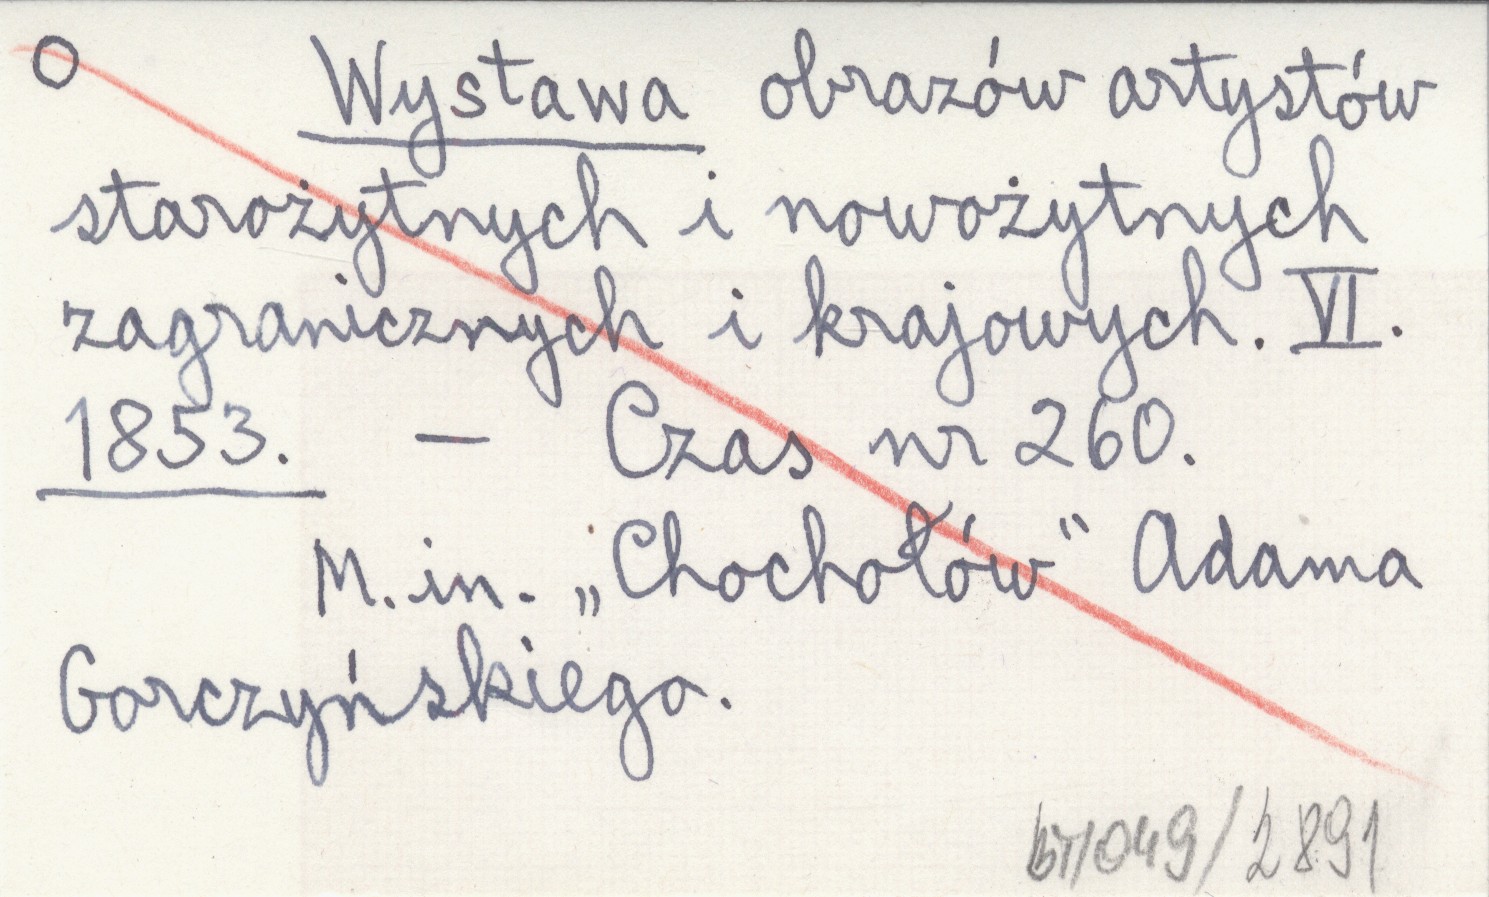 O Wystawa obrazów artystów
starożytnych i nowożytnych
zagranicznych i krajowych. VI.
1853. — Czas nr 260.
M. in. „Chochołów" Adama
Gorczyńskiego.
/049/2891